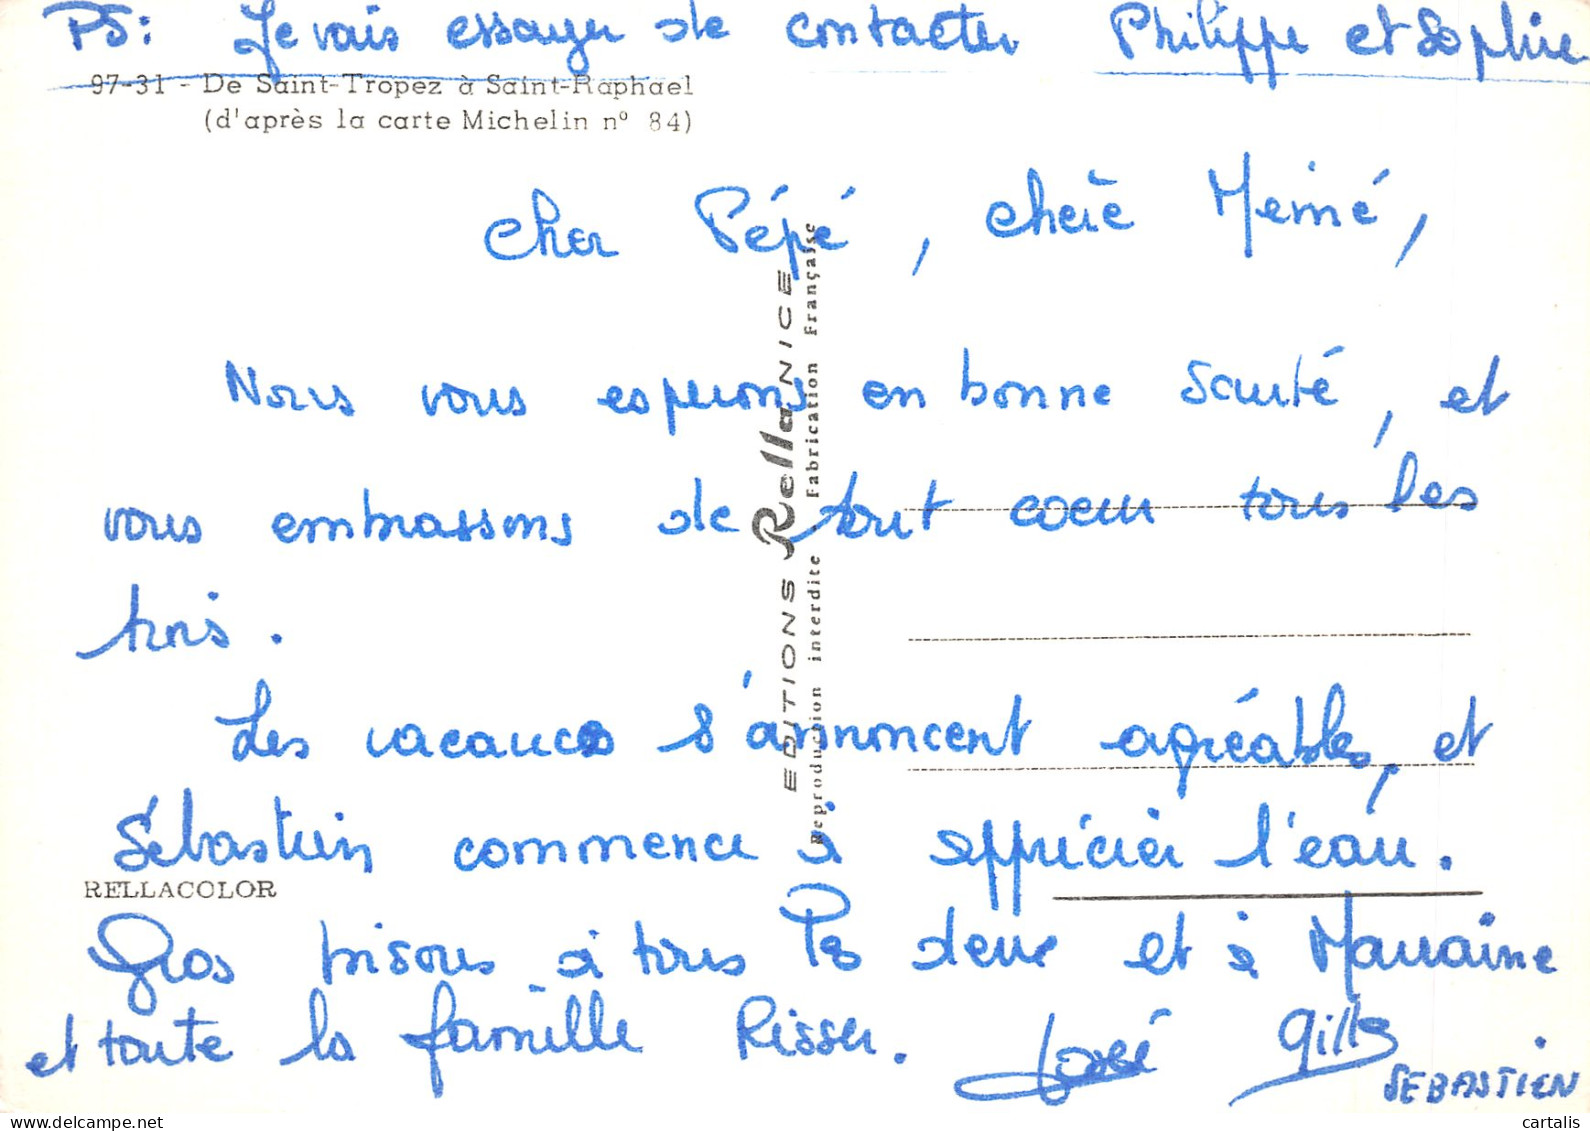 PS: Je vais essayer de contacter Philippe et Sophie
97-31 - De Saint-Tropez à Saint-Raphael
(d'après la carte Michelin nº 84)
Cher Pépé, chère Mémé,
Nous vous espérons en bonne santé, et
vous embrassons de tout coeur tous les
trois.
Les vacances s'annoncent agréables, et
Sébastien commence à apprécier l'eau.
RELLACOLOR
Gros bisous à tous les deux et à Marraine
et toute la famille Risser. José Gilles
SEBASTIEN
EDITIONS Rella NICE
Reproduction interdite - Fabrication Française
www.delcampe.net
cartalis